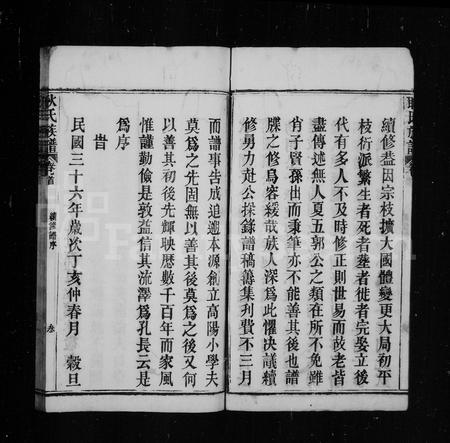 續修益因宗枝擴大國體變更大局初平
枝衍派繁生者死者塟者徙者完娶立後
代有多人不及時修正則世易而故老皆
盡傳述無人夏五郭公之類在所不免雖
肖子賢孫出而秉筆亦不能善其後也譜
牒之修烏容緩哉族人深爲此懼决議續
修勇力赴公採錄譜稿善集刋費不三月
而譜事告成追遡本源創立高陽小學夫
莫爲之先固無以善其後莫爲之後又何
以善其初後先輝映歷數千百年而家風
惟謹勤儉是敦益信其流澤爲孔長云是
爲序
旹
民國三十六年歲次丁亥仲春月 穀旦
耿氏族譜 卷首 續修譜序 叁
氏族譜